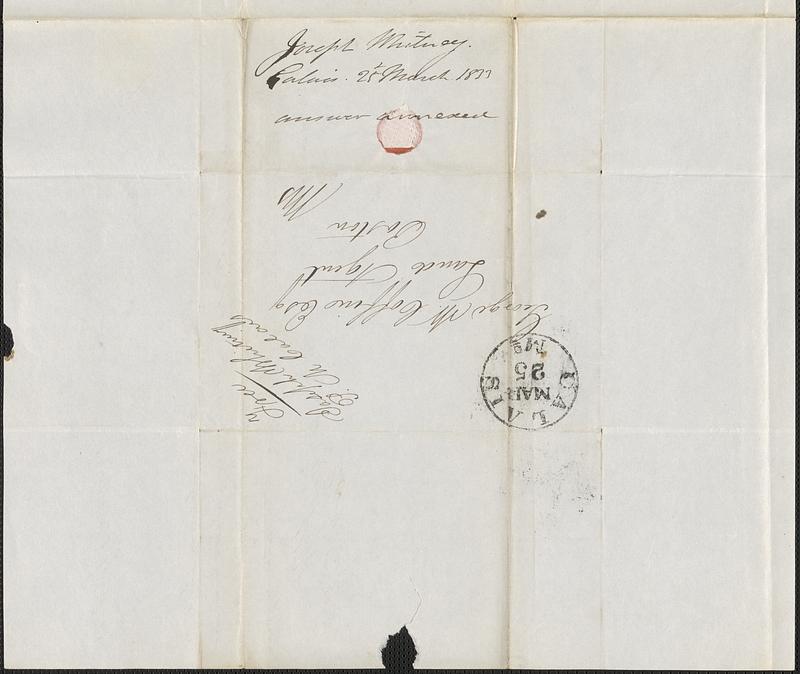 Joseph Whitney.
Calais. 25 March 1833
answer annexed
George W. Coffin Esq
Land Agent
Boston
Ms
Free
Joseph Whitney
P. M Calais
CALAIS
MAR
25
Me